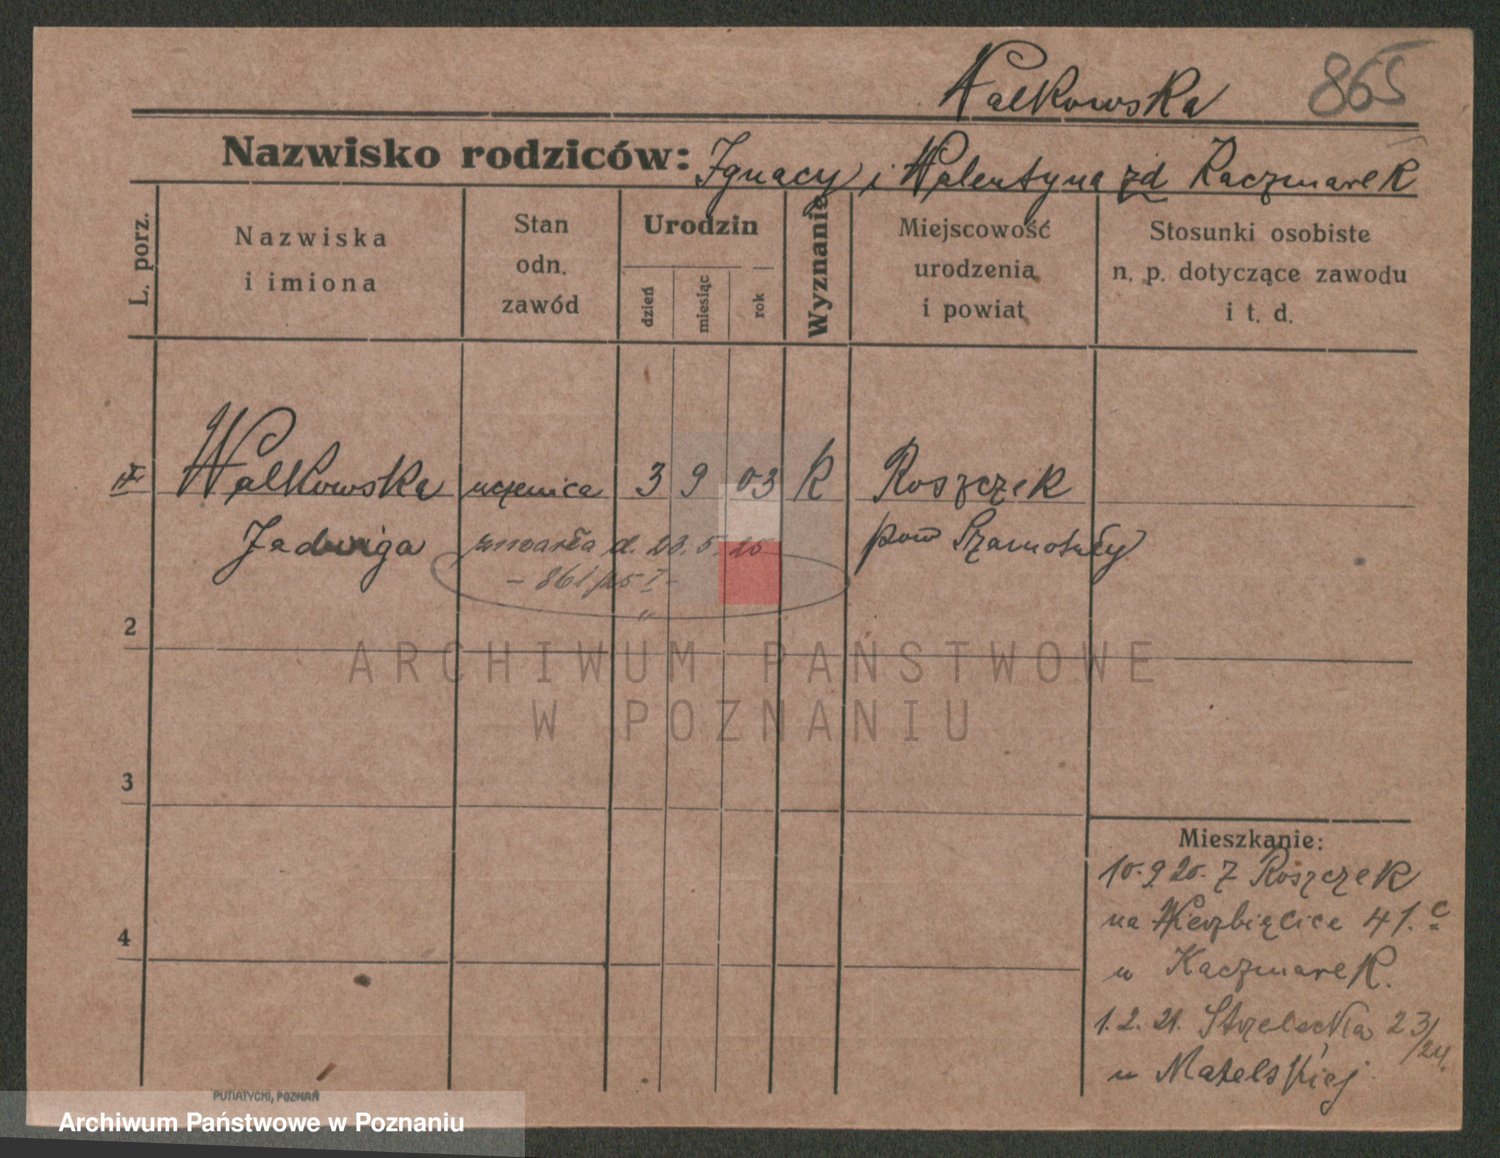 Walkowska
865
Nazwisko rodziców: Ignacy i Walentyna zd Kaczmarek
L. porz.
Nazwiska
i imiona
Stan
odn.
zawód
Urodzin
dzień
miesiąc
rok
Wyznanie
Miejscowość
urodzenia
i powiat
Stosunki osobiste
n. p. dotyczące zawodu
i t. d.
Walkowska uczenica 3 9 03 K Roszczek
Jadwiga zmarła d. 23.5. pow Szamotuły
- 861/25 I -
2
ARCHIWUM PAŃSTWOWE
W POZNANIU
3
4
Mieszkanie:
10.9.20. z Roszczek
na Wierzbięcice 41.c
u Kaczmarek.
1.2.21. Strzelecka 23/24.
u Matelskiej
PUTIATYCKI, POZNAŃ
Archiwum Państwowe w Poznaniu